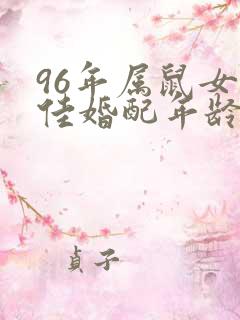 96年属鼠女
佳婚配年龄
贞子